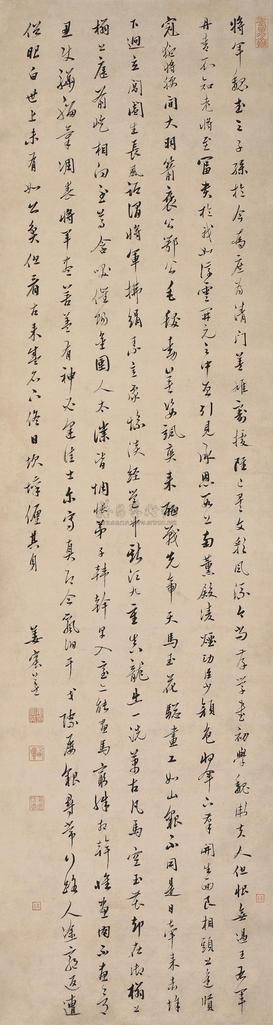 將軍魏武之子孫於今為庶為清門英雄割據雖已矣文彩風流今尚存學書初學衛夫人但恨無過王右軍
丹青不知老將至富貴於我如浮雲開元之中常引見承恩數上南薰殿凌煙功臣少顏色將軍下筆開生面良相頭上進賢
冠猛將腰間大羽箭褒公鄂公毛髮動英姿颯爽來酣戰先帝天馬玉花驄畫工如山貌不同是日牽來赤墀
下迥立閶闔生長風詔謂將軍拂絹素意象慘淡經營中斯須九重真龍出一洗萬古凡馬空玉花却在御榻上
榻上庭前屹相向至尊含笑催賜金圉人太僕皆惆悵弟子韓幹早入室亦能畫馬窮殊相幹惟畫肉不畫骨
忍使驊騮氣凋喪將軍畫善蓋有神必逢佳士亦寫真即今飄泊干戈際屢貌尋常行路人途窮返遭
俗眼白世上未有如公貧但看古來盛名下終日坎壈纏其身 姜宸英